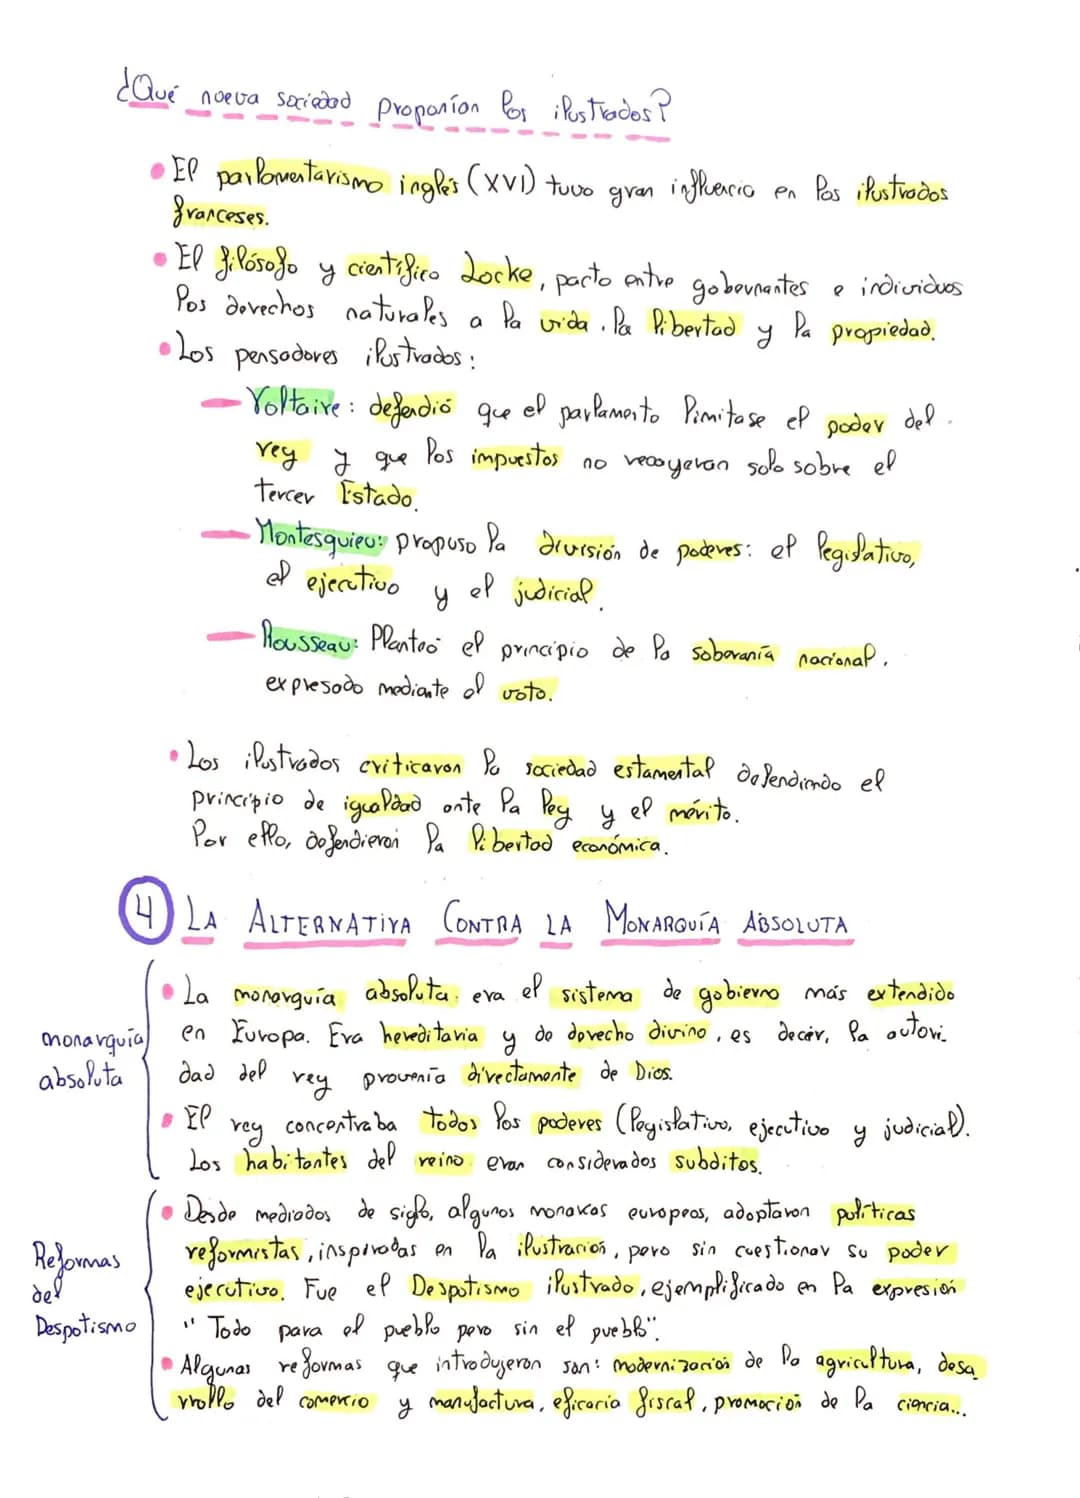 ¿Qué nueva sociedad proponían los ilustrados?
• El parlamentarismo inglés (XVI) tuvo gran influencia en los ilustrados
franceses.
• El filósofo y científico Locke, pacto entre gobernantes e individuos
los derechos naturales a la vida, la libertad y la propiedad.
• Los pensadores ilustrados:
— Voltaire: defendió que el parlamento limitase el poder del
rey y que los impuestos no recayeran solo sobre el
tercer Estado.
— Montesquieu: propuso la división de poderes: el legislativo,
el ejecutivo y el judicial.
— Rousseau: Planteó el principio de la soberanía nacional,
expresado mediante el voto.
• Los ilustrados criticaron la sociedad estamental defendiendo el
principio de igualdad ante la ley y el mérito.
Por ello, defendieron la libertad económica.
4 LA ALTERNATIVA CONTRA LA MONARQUÍA ABSOLUTA
monarquía
absoluta
• La monarquía absoluta era el sistema de gobierno más extendido
en Europa. Era hereditaria y de derecho divino, es decir, la autori
dad del rey provenía directamente de Dios.
• El rey concentraba todos los poderes (legislativo, ejecutivo y judicial).
Los habitantes del reino eran considerados subditos.
Reformas
del
Despotismo
• Desde mediados de siglo, algunos monarcas europeos, adoptaron políticas
reformistas, inspiradas en la ilustración, pero sin cuestionar su poder
ejecutivo. Fue el Despotismo ilustrado, ejemplificado en la expresión
"Todo para el pueblo pero sin el pueblo".
• Algunas reformas que introdujeron son: modernización de la agricultura, desa
rrollo del comercio y manufactura, eficacia fiscal, promoción de la ciencia...